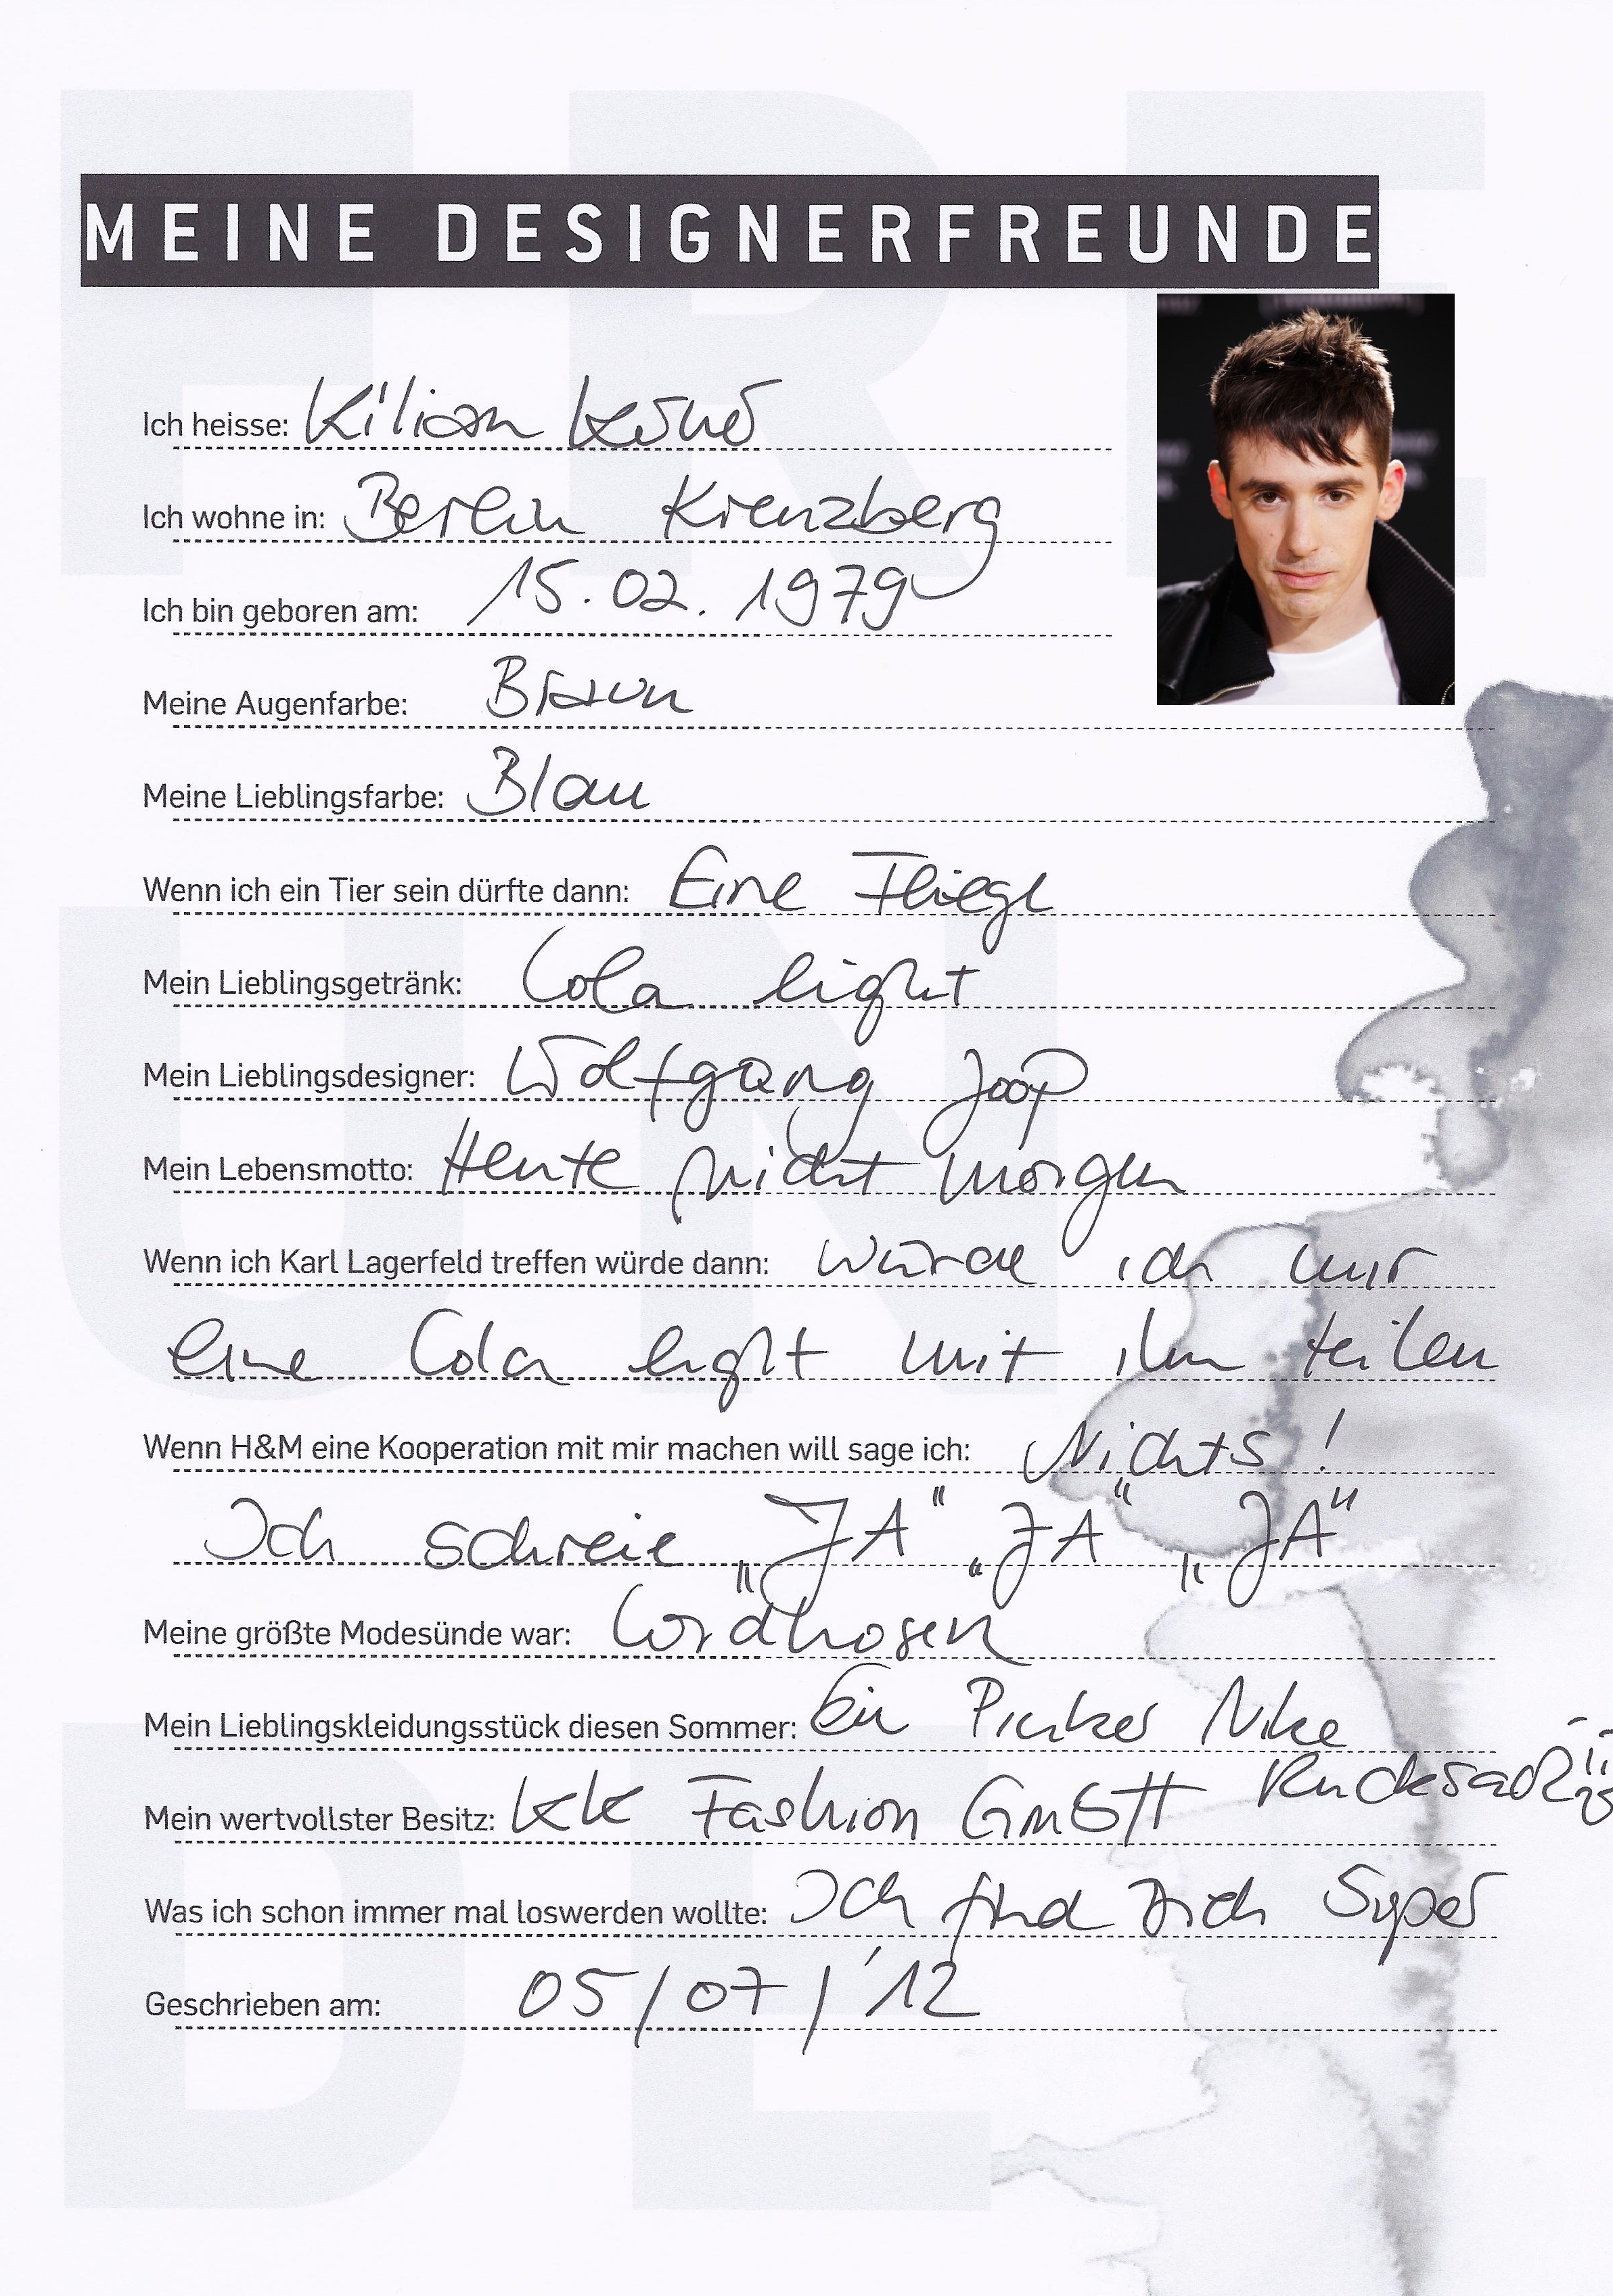 MEINE DESIGNERFREUNDE
Ich heisse: Kilian Kerner
Ich wohne in: Berlin Kreuzberg
Ich bin geboren am: 15.02.1979
Meine Augenfarbe: Braun
Meine Lieblingsfarbe: Blau
Wenn ich ein Tier sein dürfte dann: Eine Fliege
Mein Lieblingsgetränk: Cola light
Mein Lieblingsdesigner: Wolfgang Joop
Mein Lebensmotto: Heute nicht morgen
Wenn ich Karl Lagerfeld treffen würde dann: würde ich mir
eine Cola light mit ihm teilen
Wenn H&M eine Kooperation mit mir machen will sage ich: Nichts!
Ich schreie „JA“ „JA“ „JA“
Meine größte Modesünde war: Cordhosen
Mein Lieblingskleidungsstück diesen Sommer: Ein Pinker Nike
Rucksack
Mein wertvollster Besitz: KK Fashion GmbH
Was ich schon immer mal loswerden wollte: Ich find Dich Super
Geschrieben am: 05/07/'12
FRE
UN
DE